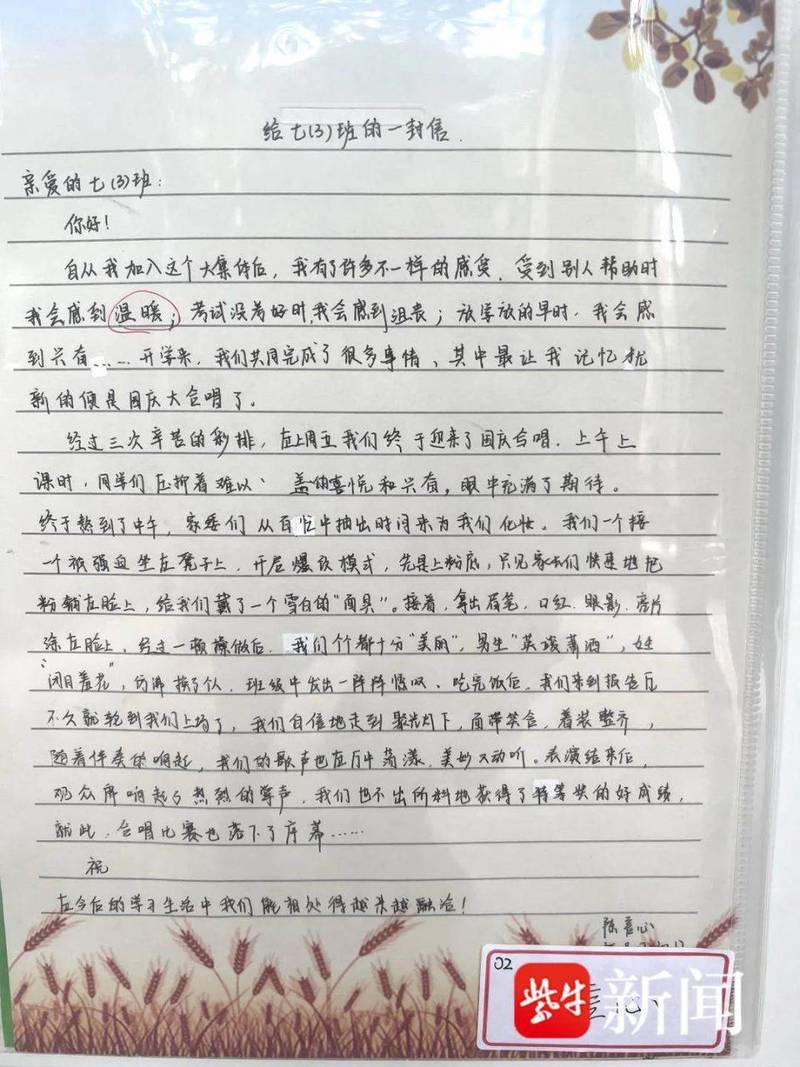 给七(3)班的一封信.
亲爱的七(3)班:
你好!
自从我加入这个大集体后,我有了许多不一样的感受.受到别人帮助时
我会感到温暖;考试没考好时,我会感到沮丧;放学放的早时,我会感
到兴奋……开学来,我们共同完成了很多事情、其中最让我记忆犹
新的便是国庆大合唱了。
经过三次辛苦的彩排,在上周五我们终于迎来了国庆合唱.上午上
课时,同学们压抑着难以 盖的喜悦和兴奋,眼中充满了期待。
终于熬到了中午,家委们从百忙中抽出时间来为我们化妆。我们一个接
一个被强迫坐在凳子上,开启爆改模式,先是上粉底,只见家长们快速地把
粉铺在脸上,给我们戴了一个雪白的"面具"。接着,拿出眉笔、口红、眼影、亮片
涂在脸上,经过一顿操做后.我们个个都十分"美丽",男生"英俊潇洒",
"闭月羞花",仿佛换了个人.班级中发出一阵阵惊叹、吃完饭后,我们来到报告厅
不久就轮到我们上场了,我们自信地走到聚光灯下,面带笑容,着装整齐,
随着伴奏的响起,我们的歌声也在厅中荡漾,美妙又动听。表演结束后,
观众席响起了热烈的掌声,我们也不出所料地获得了特等奖的好成绩,
就此,合唱比赛也落下了序幕……
祝
在今后的学习生活中我们能相处得越来越融洽!
02
心
紫牛新闻